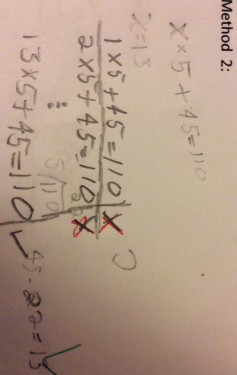 Method 2:
x × 5 + 45 = 110
x = 13
1 × 5 + 45 = 110 x
2 × 5 + 45 = 110 x
13 × 5 + 45 = 110 ✓
45 - 22 = 13 ✓